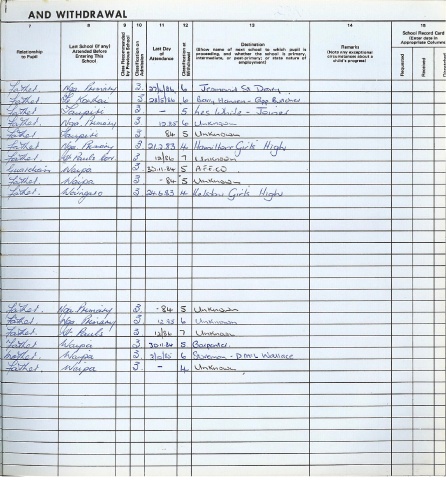 AND WITHDRAWAL
7 8 9 10 11 12 13 14 15
Relationship to Pupil
Last School (if any) Attended Before Entering This School
Class Recommended by Previous School
Classification on Admission
Last Day of Attendance
Classification at Withdrawal
Destination
(Show name of next school to which pupil is proceeding, and whether the school is primary, intermediate, or post-primary; or state nature of employment)
Remarks
(Note any exceptional circumstances about a child's progress)
School Record Card
(Enter date in Appropriate Columns)
Requested
Received
Father. Nga. Primary 3 6
Father 3 28/5/86 6
Father. Taupiri 3 - 5
Father. Nga. Primary 3 12.85 6 Unknown
Father. Taupiri 3 84 5 Unknown
Father. Nga. Primary 3 21.2.83 4 Hamilton Girls High
Father. St Pauls 3 12/86 7 Unknown
Guardian Waipa 3 30.11.84 5 A.F.F.Co.
Father. Waipa 3 -84 5 Unknown
Father. Waingaro 3 24.6.83 4 Kelston Girls High
Father. Nga Primary 3. -84 5 Unknown
Father. Nga Primary 3. 12.85 6 Unknown
Father. St Pauls 3. 12/86 7 Unknown
Father Waipa 3 30.11.84 5
Waipa 3 6 Wallace
Father. Waipa 3. - 4 Unknown